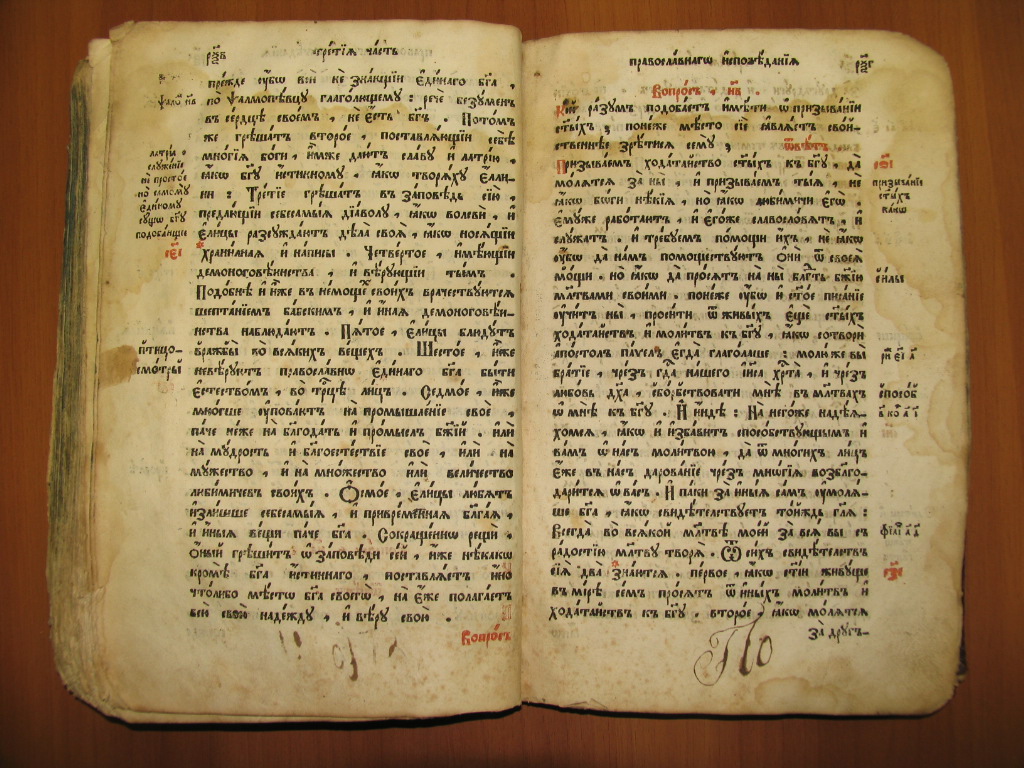 третїѧ чаⷭ҇ть
пре́жде ᲂу҆́бѡ всѝ не зна́ющїи є҆ди́наго бг҃а ,
по ѱалмопѣ́вцу глаго́лющему : речѐ безу́менъ
въ се́рдцѣ свое́мъ , не є҆́сть бг҃ъ . Пото́мъ
же грѣша́тъ второ́е , поставлѧ́ющїи себѣ̀
мнѡ́гїѧ бо́ги , и҆̀мже даю́тъ сла́ву и҆ латрі́ю ,
ꙗ҆́кѡ бг҃у и҆́стинному , ꙗ҆́кѡ творѧ́ху є҆́лли-
ни : Тре́тїе грѣша́тъ въ за́повѣдь сїю̀ ,
предаю́щїи себесамы́ѧ дїа́волу , ꙗ҆́кѡ волсвѝ , и҆
є҆ли́цы разсужда́ютъ дѣла̀ своѧ̀ , ꙗ҆́кѡ носѧ́щїи
храни́лнаѧ и҆ на́писы . Четве́ртое , и҆мѣ́ющїи
демоноговѣ́инства , и҆ вѣ́рующїи ты̑мъ .
Подо́бнѣ и҆ и҆̀же въ не́мощехъ свои́хъ врачеству́ютсѧ
шепта́нїемъ ба́бскимъ , и҆ и҆на́ѧ демоноговѣ́и-
нства наблюда́ютъ . Пѧ́тое , є҆ли́цы блюду́тъ
вражбы̀ во всѧ́кихъ веще́хъ . Шесто́е , и҆̀же
невѣ́руютъ правосла́внѡ є҆ди́наго бг҃а бы́ти
є҆стество́мъ , во трⷪ҇цѣ ли́цъ . Седмо́е , и҆̀же
мно́жше ᲂу҆пова́ютъ на промышле́нїе своѐ ,
па́че не́же на блг҃ода́ть и҆ про́мыслъ бж҃їй . и҆лѝ
на мꙋ́дрость и҆ благоесте́ствїе своѐ , и҆лѝ , на
му́жество , и҆ на мно́жество и҆лѝ вели́чество
люби́мичевъ свои́хъ . Ѻ҆смо́е . є҆ли́цы лю́бѧтъ
и҆зли́шше себесамы́ѧ , и҆ привре́меннаѧ блага́ѧ ,
и҆ и҆ны́ѧ ве́щи па́че бг҃а . Сокраще́ннѡ рещѝ ,
ѻ҆́ный грѣши́тъ ѡ҆ за́повѣди се́й , и҆̀же нѣ́какѡ
кромѣ̀ бг҃а и҆́стиннаго , поставлѧ́етъ и҆́но
что́либо мѣ́стѡ бг҃а своегѡ̀ , на є҆́же полага́етъ
всю̀ свою̀ наде́жду , и҆ вѣ́ру свою̀ .
Вопро́съ
латрі́ѧ
служе́нїе
не просто́е
но самому
є҆ди́ному
су́щѡ бг҃у
подоба́ющїе
пти́цо-
смотры̀
правосла́внагѡ и҆сповѣ́данїѧ
рѯ҃г
Вопро́съ , н҃в .
Кі́й ра́зумъ подоба́етъ и҆мѣ́ти ѡ҆ призыва́нїи
ст҃ы́хъ ; поне́же мѣ́сто сїѐ ꙗ҆влѧ́етъ сво́й-
ственнѣе зрѣ́тисѧ сему̀ ; Ѿвѣ́тъ .
Призыва́емъ хода́тайство ст҃ы́хъ къ бг҃у , да
мо́лѧтсѧ за ны̀ , и҆ призыва́емъ ты́ѧ , не
ꙗ҆́кѡ бо́ги нѣ́кїѧ , но ꙗ҆́кѡ люби́мичи є҆гѡ̀ .
є҆му́же рабо́таютъ , и҆ є҆го́же славосло́вѧтъ , и҆
слу́жатъ . и҆ тре́буемъ по́мощи и҆́хъ , не ꙗ҆́кѡ
ᲂу҆́бѡ да на́мъ помоществу́ютъ ѻ҆нѝ ѿ своеѧ̀
мо́щи . но ꙗ҆́кѡ да про́сѧтъ на ны̀ блгⷣть бж҃їю
мл҃твами свои́ми . поне́же ᲂу҆́бѡ и҆ ст҃о́е писа́нїе
ᲂу҆чи́тъ ны̀ , проси́ти ѿ живы́хъ є҆щѐ ст҃ы́хъ
хода́тайствъ и҆ моли́твъ къ бг҃у , ꙗ҆́кѡ сотворѝ
а҆по́столъ па́ѵелъ є҆гда̀ глаго́лаше : молю́же вы̀
бра́тїе , чре́зъ гдⷭ҇а на́шего і҆и҃са хрⷭ҇та̀ , и҆ чре́зъ
любо́вь дх҃а , сбо́рствовати мнѣ̀ въ мл҃твахъ
ѡ҆ мнѣ̀ къ бг҃у . И҆ и҆́ндѣ : На него́же надѣ́ѧ-
хомсѧ , ꙗ҆́кѡ и҆ и҆зба́витъ спосо́бствующымъ и҆
ва́мъ ѡ҆ на́съ моли́твою , да ѿ мно́гихъ ли́цъ
є҆́же въ на́съ дарова́нїе чре́зъ мнѡ́гїѧ возблаго-
дари́тсѧ ѡ҆ ва́съ . И҆ па́ки за и҆ны́ѧ са́мъ ᲂу҆молѧ́-
ше бг҃а , ꙗ҆́кѡ свидѣ́телствуетъ то́йждь гл҃ѧ :
Всегда̀ во всѧ́кой мл҃твѣ мое́й за всѧ̀ вы̀ съ
ра́достїю мл҃тву творѧ̀ . Ѿ си́хъ свидѣ́телствъ
сїѧ̑ два̀ зна́ютсѧ . пе́рвое , ꙗ҆́кѡ ст҃і́и живу́ще
въ ми́рѣ се́мъ про́сѧтъ ѿ и҆ны́хъ моли́твъ и҆
хода́тайствъ къ бг҃у . второ́е , ꙗ҆́кѡ мо́лѧтсѧ
за́ другъ-
призыва́нїе
ст҃ы́хъ
ка́кѡ
спосо́б